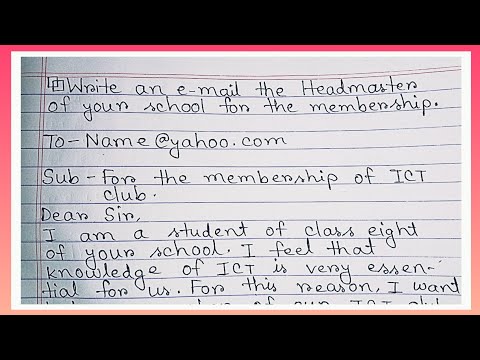 Write an e-mail the Headmaster
of your school for the membership.
To- Name@yahoo.com
Sub - For the membership of ICT
club.
Dear Sir,
I am a student of class eight
of your school. I feel that
knowledge of ICT is very essen-
tial for us. For this reason, I want